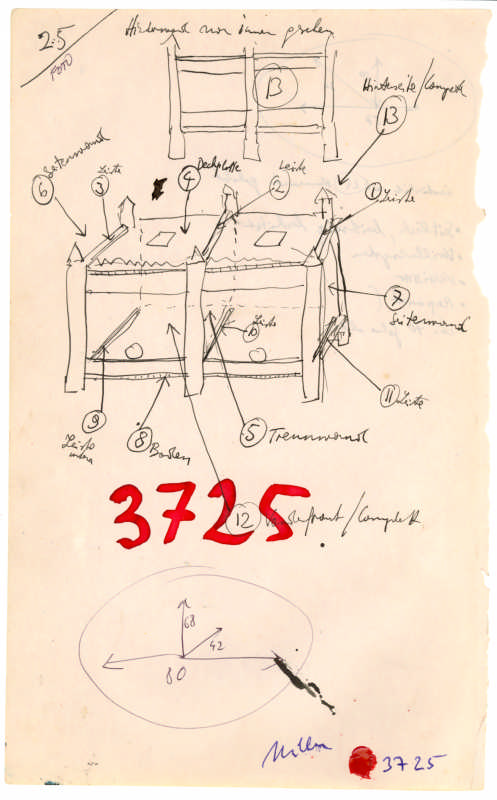 2.5
FOTO
Hinterwand von innen gesehen
B
Hinterseite/Complett
B
6 Seitenwand
3 Leiste
4 Deckplatte
2 Leiste
1 Leiste
7 Seitenwand
10 Leiste
11 Leiste
9 Leiste
8 Boden
5 Trennwand
12 Vorderfront/Complett
3725.
68
42
80
3725